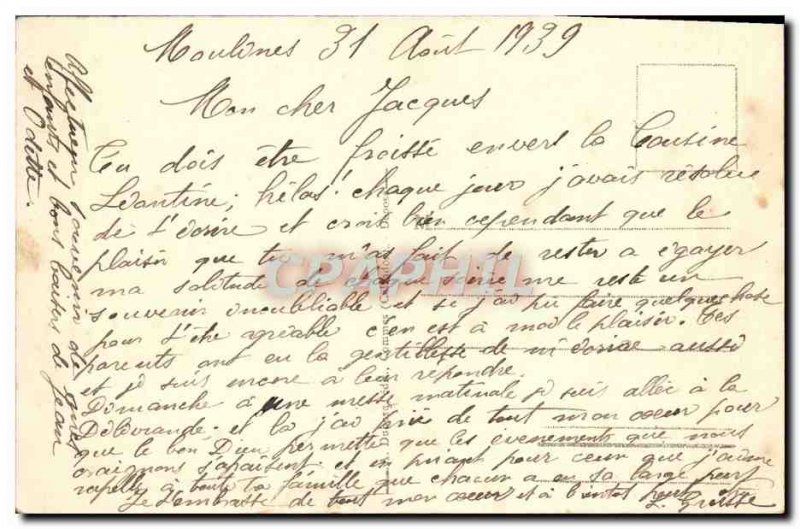 Moulines 31 Août 1939
Mon cher Jacques
Tu dois être froissé envers la Cousine
Léontine; hélas! chaque jour j'avais résolue
de t'écrire et crois bien cependant que le
plaisir que tu m'as fait de rester a égayer
ma solitude de chaque soirée me reste un
souvenir inoubliable et si j'ai pu faire quelque chose
pour t'être agréable c'en est à moi le plaisir. Tes
parents ont eu la gentillesse de m'écrire aussi
et je suis encore à leur répondre.
Dimanche à une messe matinale je suis allée à la
Délivrande et là j'ai prié de tout mon cœur pour
que le bon Dieu permette que les évenements que nous
craignons s'apaisent et en priant pour ceux que j'aime
rapelle à toute ta famille que chacun a eu sa large part
Je t'embrasse de tout mon cœur et à bientôt
Affectueux souvenir de
enfants et bons baisers de Jean
et Odette.
CPAPHIL